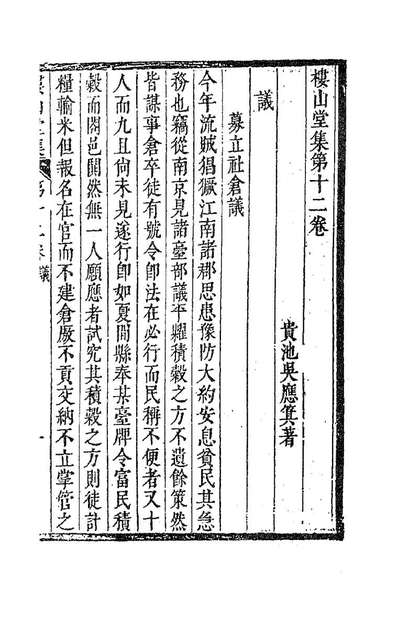 樓山堂集第十二卷
貴池吳應箕著
議
募立社倉議
今年流賊猖獗江南諸郡思患豫防大約安息貧民其急
務也竊從南京見諸臺部議平糶積穀之方不遺餘策然
皆謀事倉卒徒有號令卽法在必行而民稱不便者又十
人而九且尙未見遂行卽如夏間縣奉某臺牌令富民積
穀而闔邑閴然無一人願應者試究其積穀之方則徒計
糧輸米但報名在官而不建倉廒不貢交納不立掌管之
樓山堂集 第十二卷 議 一